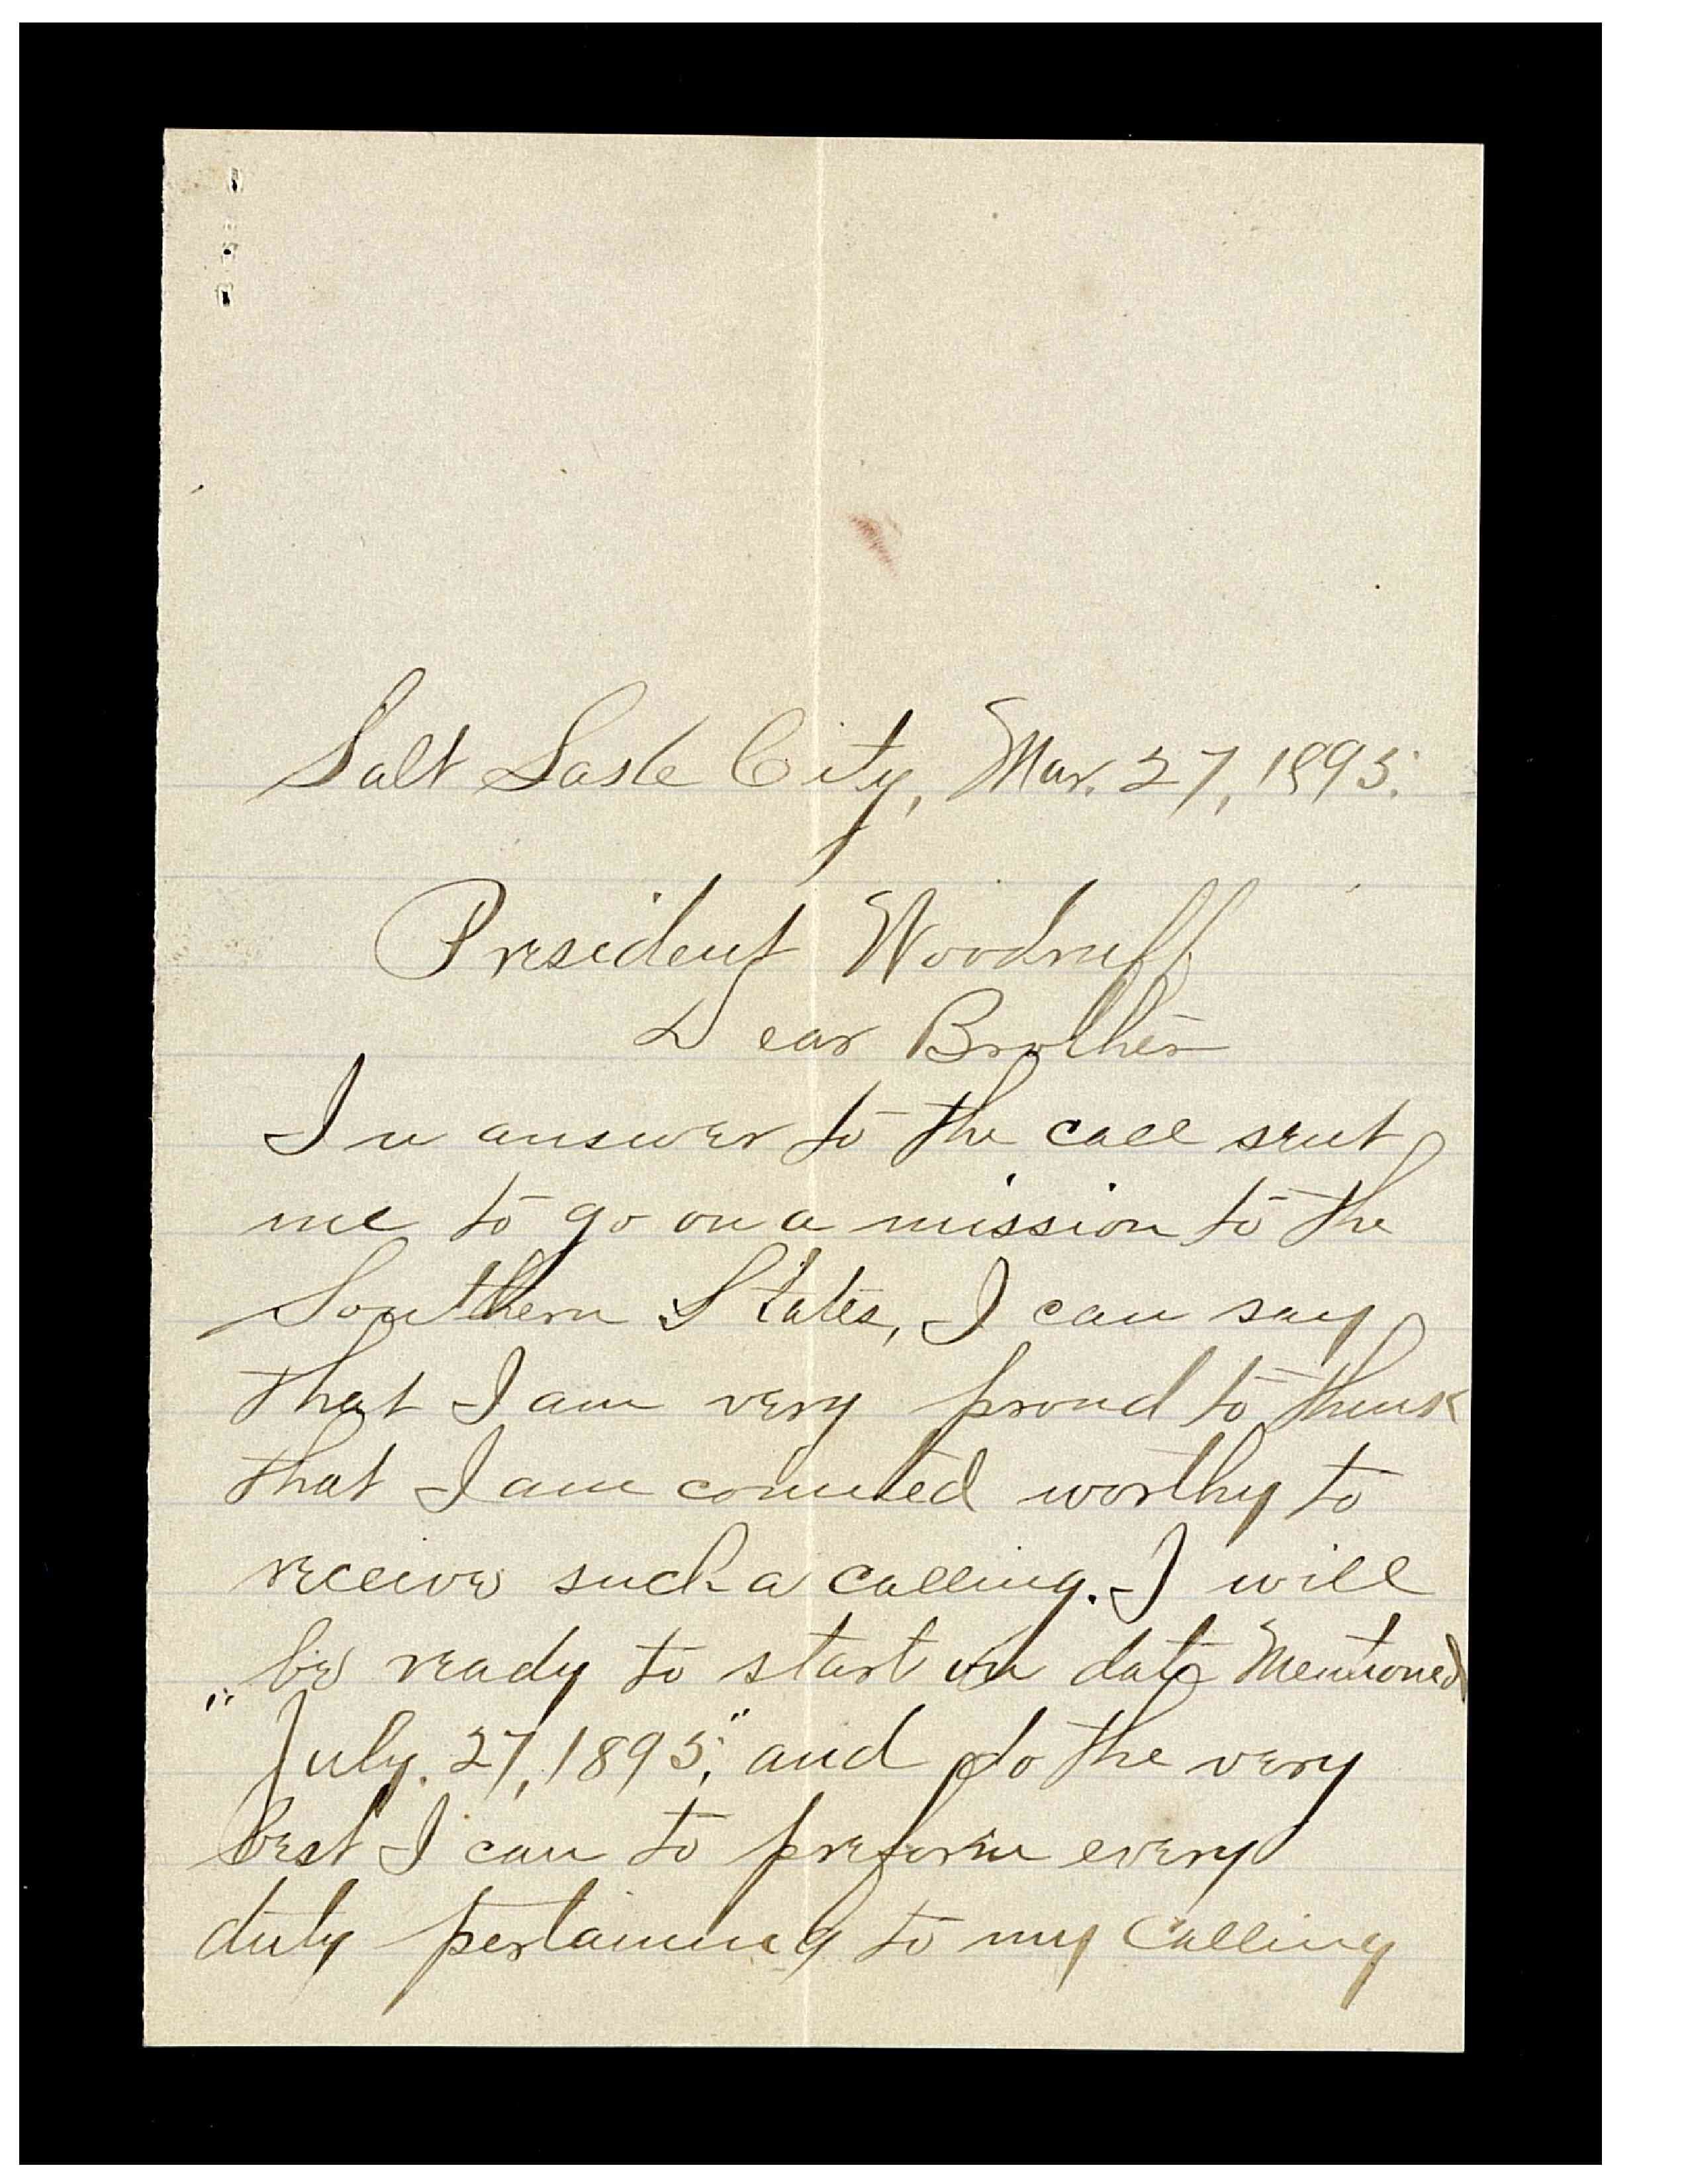 Salt Lake City, Mar. 27, 1895.
President Woodruff
Dear Brother
In answer to the call sent
me to go on a mission to the
Southern States, I can say
that I am very proud to think
that I am counted worthy to
receive such a calling. I will
be ready to start on date Mentioned
"July. 27, 1895," and do the very
best I can to preform every
duty pertaining to my calling